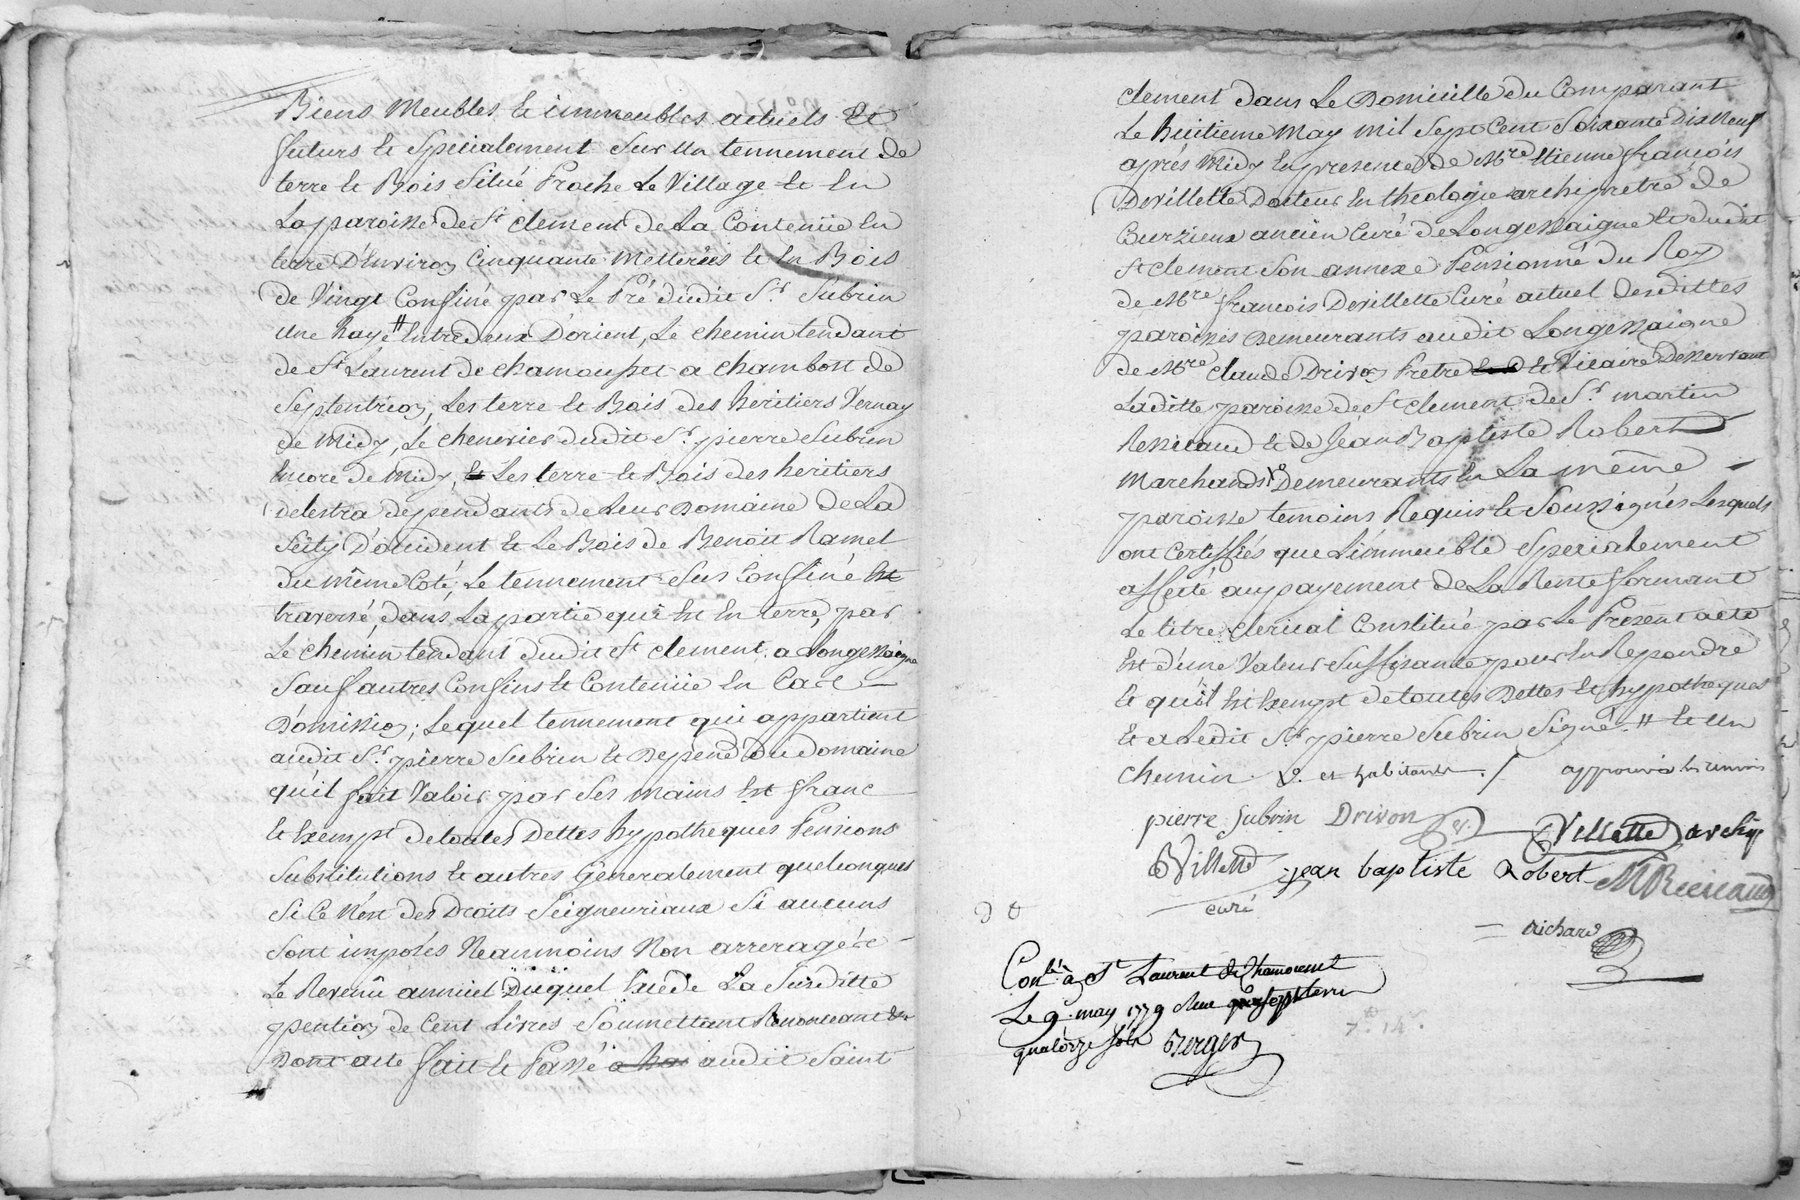 Biens Meubles et immeubles actuels Et
futurs et Specialement Sur Un tennement de
terre et Bois Situé Proche Le Village et En
La paroisse de St clement de La Contenüe En
terre D'Environ Cinquante Metterées et En Bois
de Vingt Confiné par Le Pré dudit Sr Subrin
Une haye # Entredeux D'orient, Le chemin tendant
de St Laurent de chamousset a chambost de
Septentrion, Les terre et Bois des heritiers Vernay
de Midy, Le chenevier dudit Sr pierre Subrin
Encore de Midy, Les terre et Bois des heritiers
delestra dependants de Leur Domaine de La
D'occident et Le Bois de Benoit Ramel
du même Coté, Le tennement Sus Confiné Est
traversé, dans La partie qui Est En terre, par
Le chemin tendant dudit St clement a Longessaigne
Sauf autres Confins et Contenüe En Cas
D'omission; Lequel tennement qui appartient
audit Sr pierre Subrin et Depend du domaine
qu'il fait Valoir par Ses mains Est franc
Et Exempt de toutes Dettes hypotheques Pensions
Substitutions et autres Generalement quelconques
Si Ce N'est des Droits Seigneuriaux Si aucuns
Sont imposés Neanmoins Non arreragés
Le Revenû annuel Duquel Excéde La Susditte
pention de Cent Livres Soumettant Renoncant
Dont acte fait et Passé audit Saint
clement dans Le Domicille du Comparant
Le huitieme May Mil Sept Cent Soixante Dix Neuf
aprés Midy En presence de Mre Etienne françois
Devillette Docteur En theologie archipretre de
Courzieux ancien Curé de Longessaigne et dudit
St clement Son annexe Pensionné du Roy
de Mre françois Devillette Curé actuel Desdittes
paroisses Demeurants audit Longessaigne
de Mre claude Drivon Pretre et Vicaire Desservant
Laditte paroisse de St clement de Sr martin
et de Jean Baptiste Robert
Marchands Demeurants En La même
paroisse temoins Requis et Soussignés Lesquels
ont Certiffiés que L'immeuble Specialement
affecté au payement de La Rente formant
Le titre Clerical Constitué par Le Présent acte
Est d'une Valeur Suffisante pour En Repondre
Et qu'il Est Exempt de toutes Dettes Et hypotheques
Et a Ledit Sr pierre Subrin Signé. # et un
chemin. et habitants ./. approuvé les renvois
pierre Subrin Drivon Villette archip
DVillette jean baptiste Robert
curé
Richard
Conlé à St Laurent de Chamousset
Le 9. may 1779 Reçu
quatorze sols Berger
7 14